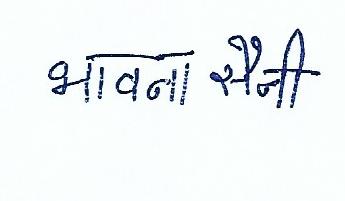 भावना सैनी